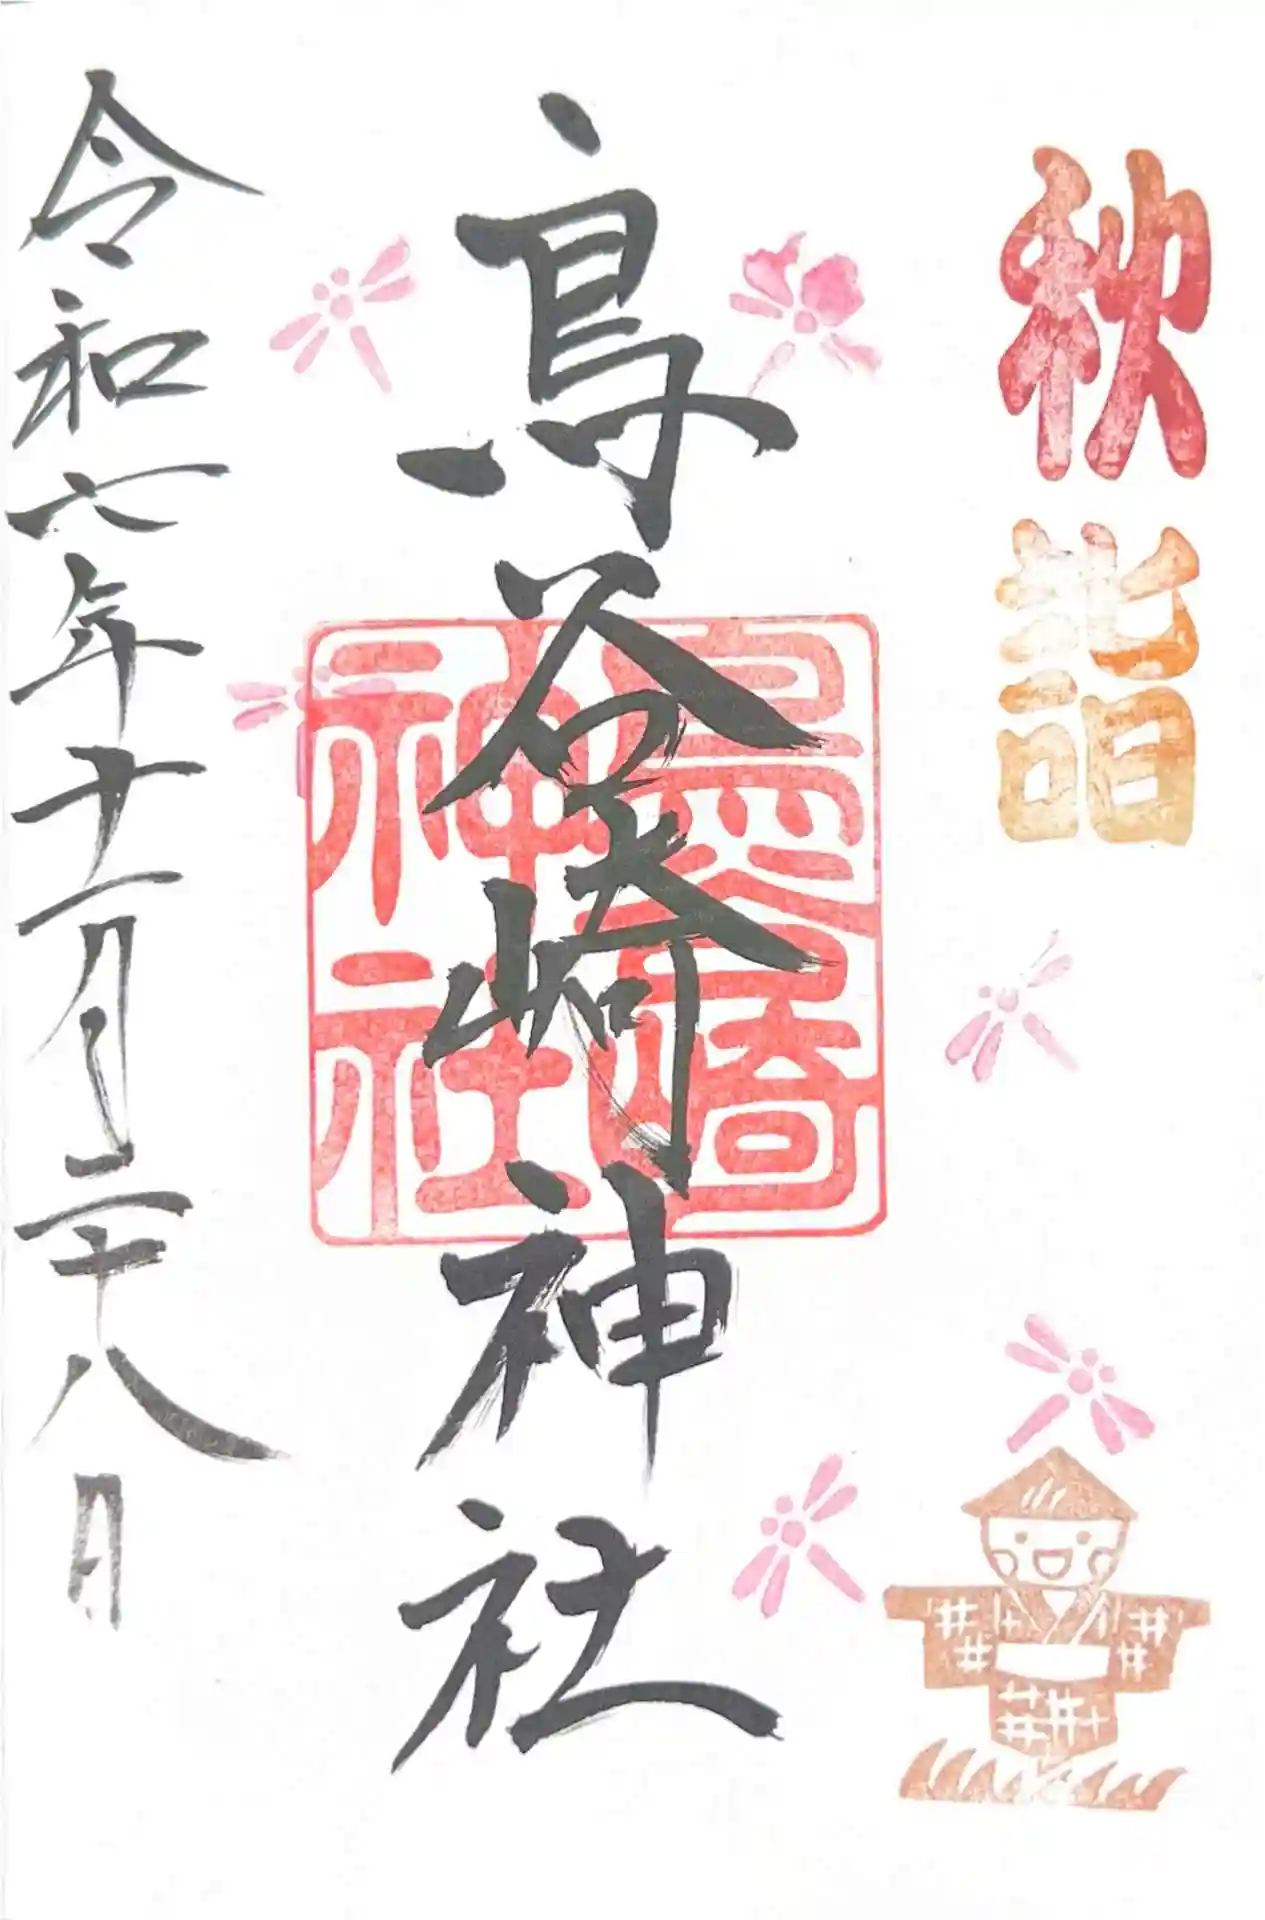 秋詣
鳥谷崎神社
鳥谷崎
神社
令和六年十一月二十八日